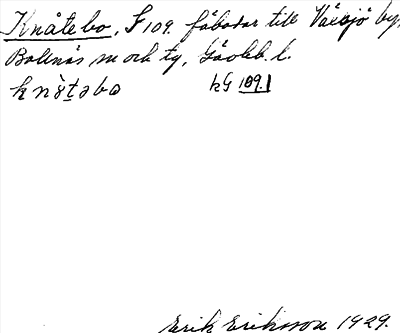 Knåtebo, F 109. fäbodar till Växsjö by,
Bollnäs sn och tg, Gävleb. l.
knə̀t̠əbo hG 109.1
Erik Eriksson 1929.